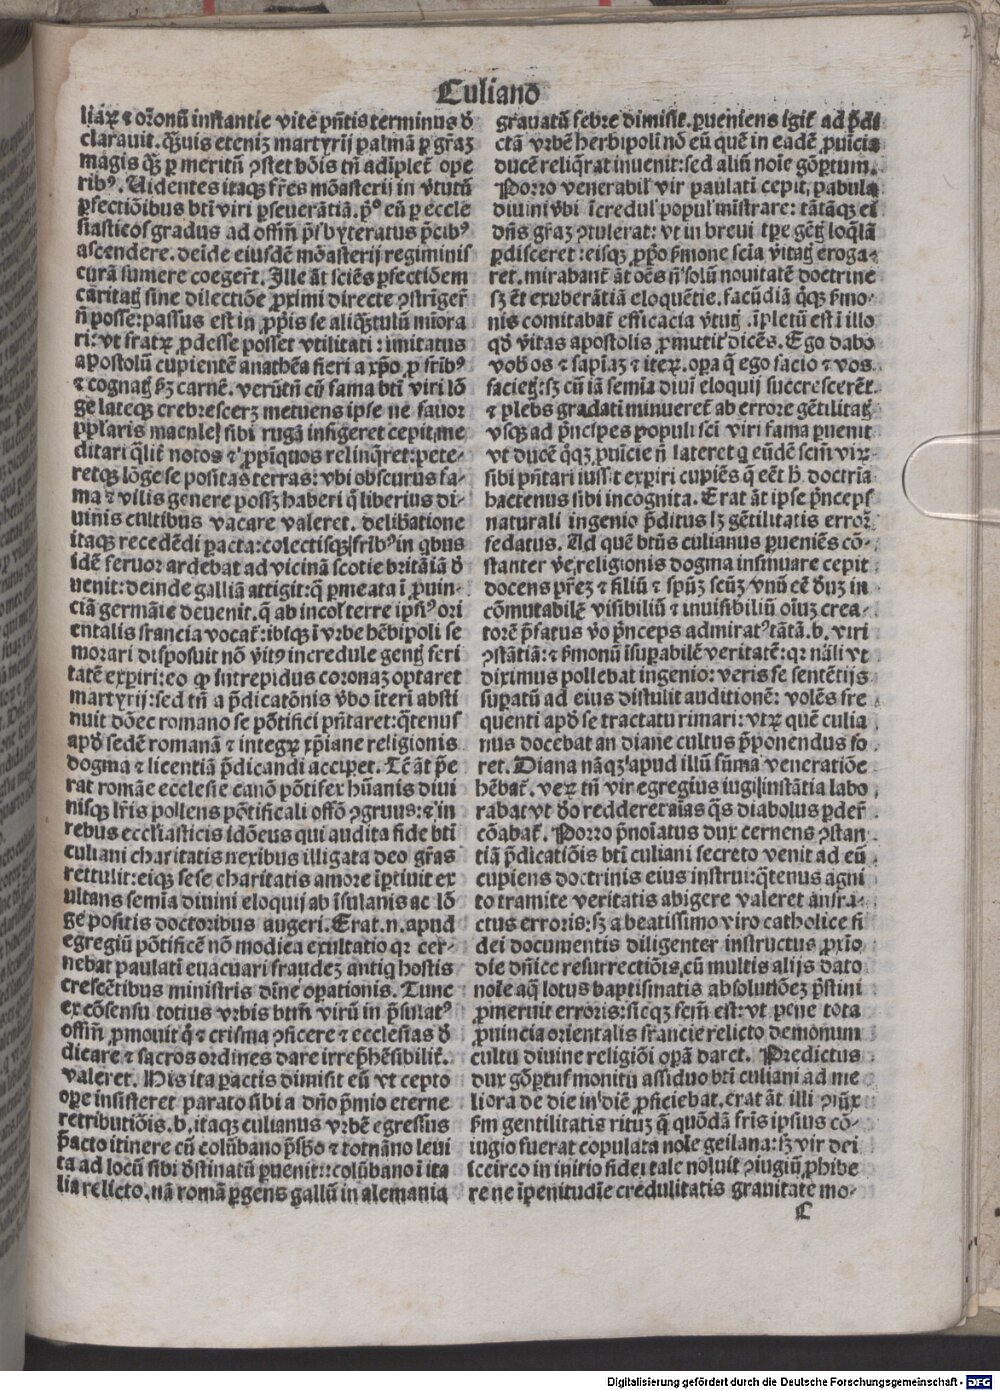 Culianꝰ
liaꝝ ⁊ oꝛ̄onū instantie vitē pñtis terminus d̄
clarauit. qᷓꝫuis eteniꝫ martyrij palmā ꝑ gr̄aꝫ
magis qᷓꝫ ꝑ meritū ꝯstet bōis tñ adīplet̄ ope
ribꝰ. Uidentes itaqꝫ fr̄es mōasterij in v̄tutū
ꝑfectiōibus bt̄i viri ꝑseuerātiā. pͦ eū ꝑ eccle
siasticos gradus ad offm̄ p̄sbyteratus p̄cibꝰ
ascendere. deīde eiusdē mōasterij regiminis
curā sumere coegerūt. Ille āt sciēs ꝑfectiōem
caritatꝭ sine dilectiōe ꝓximi directe ꝯstriger̄
n̄ posse: passus est in ꝓpꝛijs se aliqᷓꝫtulū mīora
ri: vt fratꝝ ꝓdesse posset vtilitati: imitatus
apostolū cupientē anathēa fieri a xp̄o ꝓ frībꝰ
⁊ cognatꝭ ẜꝫ carnē. verūtñ cū fama bt̄i viri lō
ge lateqꝫ crebresceret metuens ipse ne fauor
pp̄laris macule sibi rugā infigeret cepit me
ditari qͣlit̄ notos ⁊ ꝓpīquos relinqͣret: pete-
retqꝫ lōge se positas terras: vbi obscurus fa-
ma ⁊ vilis genere possꝫ haberi q̄ liberius di-
uinis cultibus vacare valeret. deliberatione
itaqꝫ recedēdi ꝑacta: colectisqꝫ frībꝰ in qͥbus
idē feruor ardebat ad vicinā scotie britāiā d̄
uenit: deinde galliā attigit: q̄ ꝑmeata ī ꝓuin-
ciā germāie deuenit. q̄ ab incol̄ terre ipsiꝰ ori
entalis francia vocat̄: ibiqꝫ ī vrbe hēbipoli se
morari disposuit nō v̄itꝰ incredule gentꝭ feri
tatē exꝑiri: eo ꝙ intrepidus coronaꝫ optaret
martyrij: sed tñ a p̄dicatōnis v̄bo iterī absti
nuit dōec romano se pōtifici pñtaret: qᷓtenus
apud sedē romanā ⁊ integrꝝ xp̄iane religionis
dogma ⁊ licentiā p̄dicandi acciperet. Tc̄ āt p̄e
rat romāe ecclesie canō pōtifex hūanis diui
nisqꝫ lr̄is pollens pōtificali offō ꝯgruus: ⁊ in
rebus eccl̄iasticis idōeus qui audita fide bt̄i
culiani charitatis nexibus illigata deo gr̄as
rettulit: eiqꝫ sese charitatis amore īꝑtiuit ex
ultans semīa diuini eloquij ab īsulanis ac lō
ge positis doctoribus augeri. Erat.n.apud
egregiū pōtificē nō modica exultatio qꝛ cer-
nebat paulati euacuari fraudeꝫ antiq̄ hostis
crescētibus ministris dīne oꝑationis. Tunc
ex cōsensu totius vrbis btm̄ virū in p̄sulatꝰ
offm̄ ꝓmouit q̄ ⁊ crisma ꝯficere ⁊ ecclesias d̄
dicare ⁊ sacros ordines dare irrep̄hēsibilit̄
valeret. His ita ꝑactis dimisit eū vt cepto
oꝑe insisteret parato sibi a dño p̄mio eterne
retributiōis. b. itaqꝫ culianus vrbē egressus
ꝑacto itinere cū colūbano p̄sbo ⁊ totnāno leui
ta ad locū sibi d̄stinatū ꝑuenit: colūbano ī ita
lia relicto. nā romā ꝑgens gallū in alemania
grauatū febre dimisit. ꝑueniens igit̄ ad p̄di
ctā vrbē herbipoli nō eū quē in eadē ꝓuīcia
ducē reliq̄rat inuenit: sed aliū noīe gōꝑtum.
Porro venerabil̓ vir paulati cepit. pabula
diuini v̄bi īcredul̓ popul̓ mīstrare: tātāqꝫ ei
dñs gr̄aꝫ ꝯtulerat: vt in breui tꝑe gētꝭ loqͤlā
ꝑdisceret: eisqꝫ ꝓpͦo ẜmone scīa v̄itatꝭ eroga-
ret. mirabant̄ āt oēs n̄ solū nouitatē doctrine
sꝫ ēt exuberātiā eloquētie. facūdiā qͦqꝫ ẜmo-
nis comitabat̄ efficacia v̄tutꝭ. īpletū est ī illo
qd̄ v̄itas apostolis ꝓmittit dicēs. Ego dabo
vob̓ os ⁊ sapīaꝫ ⁊ iteꝝ. oꝑa q̄ ego facio ⁊ vos
facietꝭ: sꝫ cū iā semīa diuī eloquij succrescerēt
⁊ plebs gradatī minueret̄ ab errore gētilitatꝭ
vsqꝫ ad p̄ncipes populi sc̄i viri fama ꝑuenit
vt ducē qͦqꝫ ꝓuīcie n̄ lateret q̄ eūdē scm̄ viꝝ
sibi pñtari iussit experiri cupiēs q̄ eēt h̄ doctria
hactenus sibi incognita. Erat āt ipse p̄nceps
naturali ingenio p̄ditus sꝫ gētilitatis error̄
fedatus. Ad quē btūs culianus ꝑueniēs cō-
stanter v̄e religionis dogma insinuare cepit
docens p̄reꝫ ⁊ filiū ⁊ spūꝫ scūꝫ vnū eē dūꝫ in
cōmutabilē visibiliū ⁊ inuisibiliū oīuꝫ crea-
torē p̄fatus v̄o p̄nceps admiratꝰ tātā. b. viri
ꝯstātiā: ⁊ ẜmonū īsuꝑabilē veritatē: qꝛ nāli vt
diximus pollebat ingenio: veris se sentētijs
suꝑatū ad eius distulit auditionē: volēs fre
quenti apd̄ se tractatu rimari: vtꝝ quē culia
nus docebat an diane cultus p̄ponendus fo
ret. Diana nāqꝫ apud illū sūma veneratiōe
hēbat̄. veꝝ tñ vir egregius iugi īnstātia labo
rabat vt d̓o redderet aīas qͣs diabolus ꝑder̄
cōabat̄. Porro p̄noīatus dux cernens ꝯstan
tiā p̄dicatiōis bt̄i culiani secreto venit ad eū
cupiens doctrinis eius instrui: qᷓtenus agni
to tramite veritatis abigere valeret anfra-
ctus erroris: sꝫ a beatissimo viro catholice fi
dei documentis diligenter instructus ꝓxīo
die dñice resurrectiōis. cū multis alijs dato
noīe aq̄ lotus baptismatis absolutiōeꝫ p̄stini
ꝓmeruit erroris: sicqꝫ fcm̄ est: vt pene tota
ꝓuincia orientalis francie relicto demonum
cultu diuine religiōi oꝑā daret. Predictus
dux gōꝑtus monitu assiduo bt̄i culiani ad me
liora de die in diē ꝓficiebat. erat āt illi ꝯiūx
ẜm gentilitatis rituꝫ q̄ quōdā fr̄is ipsius cō-
iugio fuerat copulata noīe geilana: sꝫ vir dei
iccirco in initio fidei tale noluit ꝯiugiū ꝓhibe
re ne īpenitudīe credulitatis grauitate mo-
C
Digitalisierung gefördert durch die Deutsche Forschungsgemeinschaft - DFG